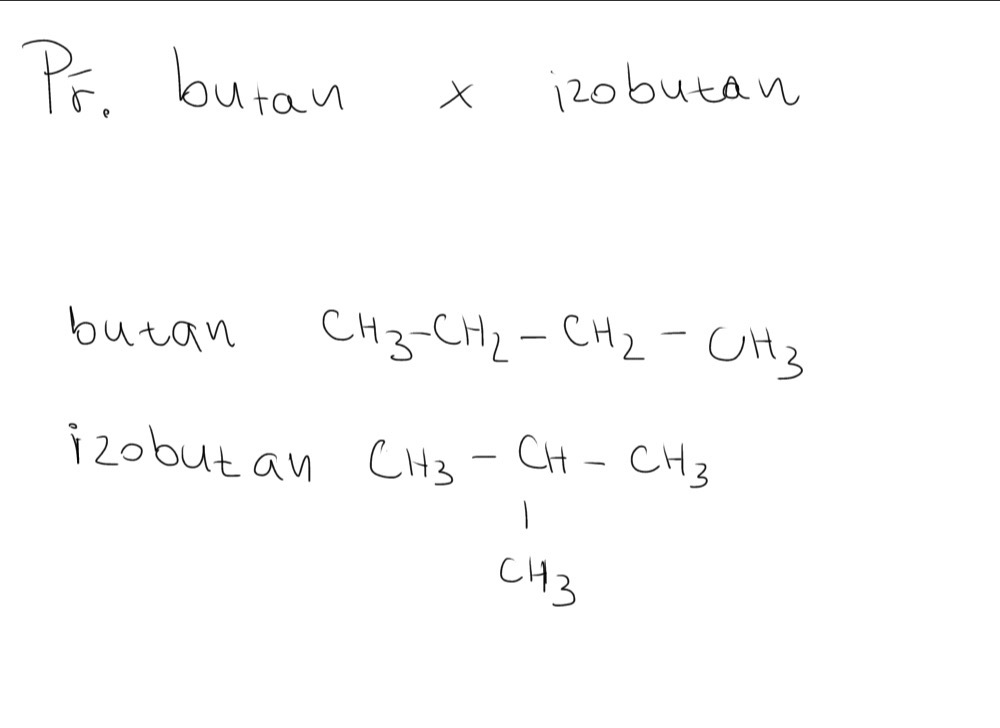 Př. butan x izobutan
butan CH3-CH2-CH2-CH3
izobutan CH3-CH-CH3
|
CH3